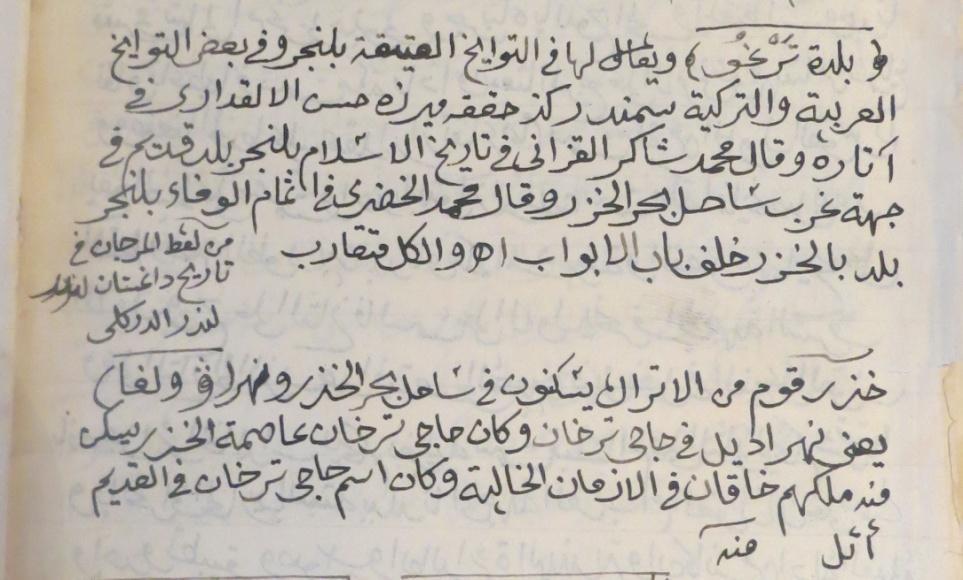 (بلدة تَرْغُو) ويقال لها في التواريخ العتيقة بلنجر وفي بعض التواريخ
العربية والتركية سمندر كذ حققه ميرزه حسن الالقداري في
آثاره وقال محمد شاكر القزاني في تاريخ الاسلام بلنجر بلد قديم في
جهة غرب ساحل بحر الخزر وقال محمد الخضري في اتمام الوفاء بلنجر
بلد بالخزر خلف باب الابواب اه والكل متقارب
من لقط المرجان في
تاريخ داغستان
لنذر الدركلي
خذر قوم من الاتراك يسكنون في ساحل بحر الخذر ونهر (ڤولغا)
يعني نهر اديل في حاجي ترخان وكان حاجي ترخان عاصمة الخزر يسكن
فيه ملكهم خاقان في الازمان الخالية وكان اسم حاجي ترخان في القديم
أتل منه